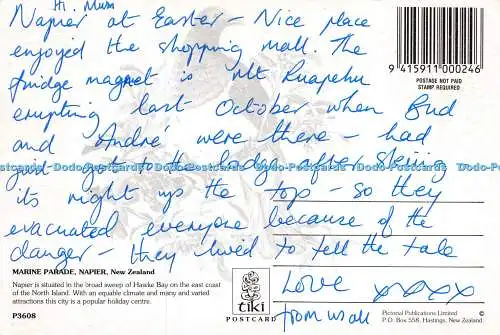 Hi Mum
Napier at Easter - Nice place
enjoyed the shopping mall. The
fridge magnet is Mt Ruapehu
erupting last October when Bud
and André were there - had
just got to the lodge after skiing
its right up the top - so they
evacuated everyone because of the
danger - they lived to tell the tale
Love xxxx
from us all
9 415911 000246
POSTAGE NOT PAID
STAMP REQUIRED
Dodo-Postcards Dodo-Postcards Dodo-Postcards Dodo-Postcards Dodo-Postcards Dodo-Postcards
MARINE PARADE, NAPIER, New Zealand
Napier is situated in the broad sweep of Hawke Bay on the east coast
of the North Island. With an equable climate and many and varied
attractions this city is a popular holiday centre.
P3608
tiki
POSTCARD
Pictorial Publications Limited
P O Box 558, Hastings, New Zealand